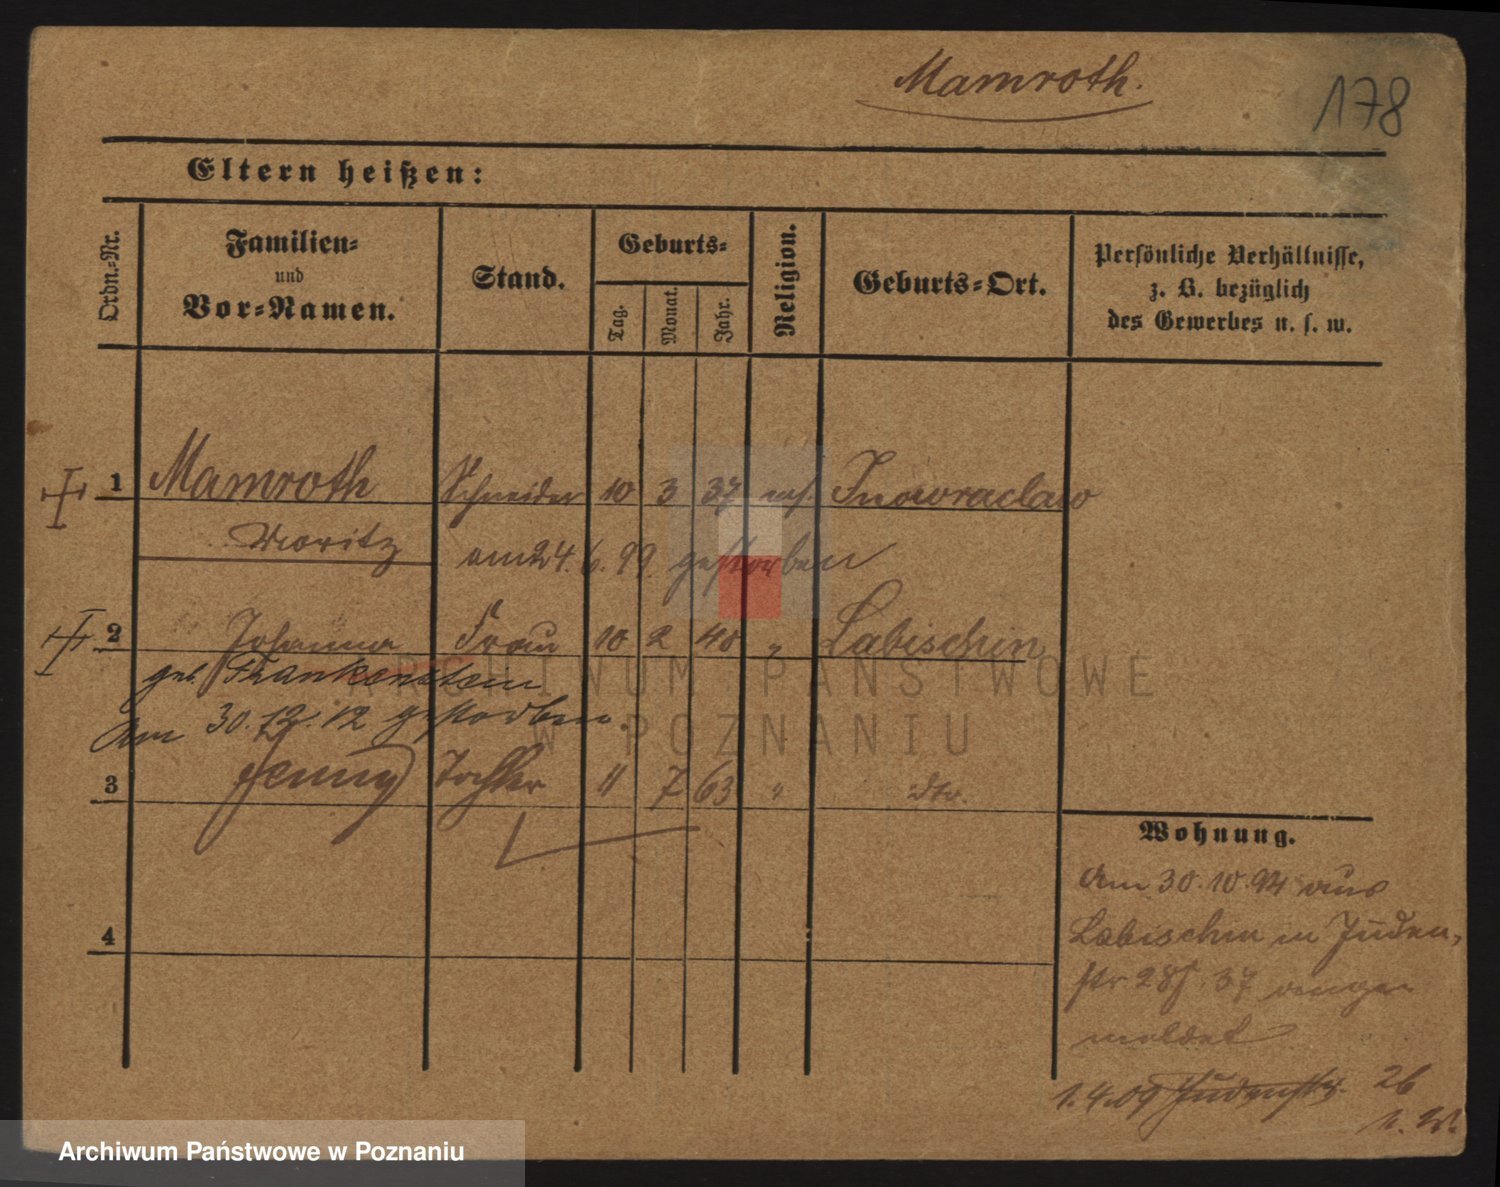 Mamroth.
178
Eltern heißen:
Ordn.-Nr.
Familien-
und
Vor-Namen.
Stand.
Geburts-
Tag.
Monat.
Jahr.
Religion.
Geburts-Ort.
Persönliche Verhältnisse,
z. B. bezüglich
des Gewerbes u. s. w.
1 Mamroth Schneider 10 3 37 mos. Inowraclaw
Moritz am 24. 6. 99. gestorben
2 Johanna Frau 10 2 48 " Labischin
geb. Frankenstein
Am 30.12.12 gestorben.
3 Jenny Tochter 11 7 63 " dto.
4
Wohnung.
Am 30.10.94 aus
Labischin in Juden-
str 28 37 ange
meldet
1.4.09 Judenstr. 26
ARCHIWUM PAŃSTWOWE
W POZNANIU
Archiwum Państwowe w Poznaniu